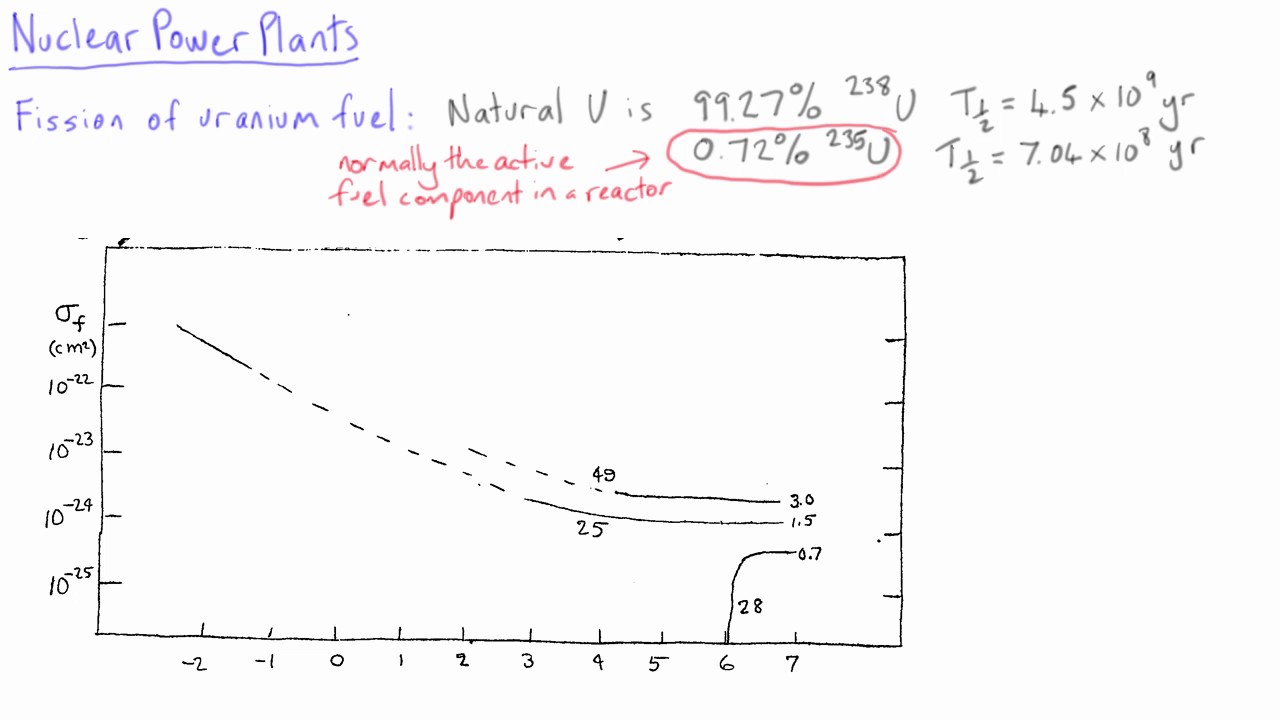 Nuclear Power Plants
Fission of uranium fuel: Natural U is 99.27% ²³⁸U T½ = 4.5 × 10⁹ yr
0.72% ²³⁵U T½ = 7.04 × 10⁸ yr
normally the active
fuel component in a reactor
σf
(cm²)
10⁻²²
10⁻²³
49
3.0
10⁻²⁴
1.5
25
0.7
10⁻²⁵
28
-2 -1 0 1 2 3 4 5 6 7